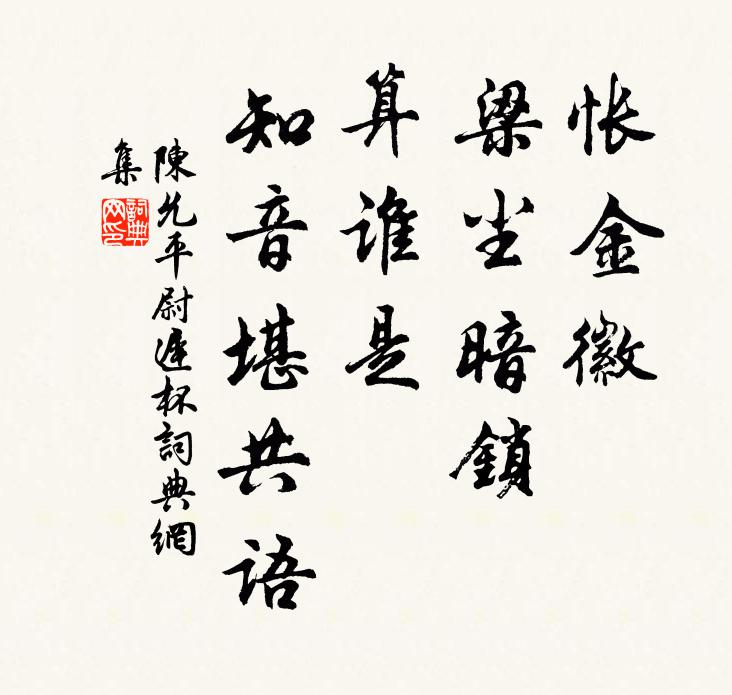 悵金徽
梁尘暗鎖
算誰是
知音堪共語
陳允平尉遲杯詞典網
集
詞典
网印